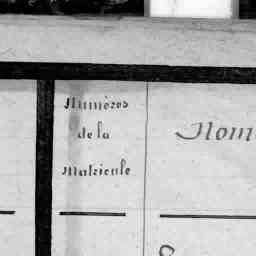 Numéros
de la
Matricule
Nom